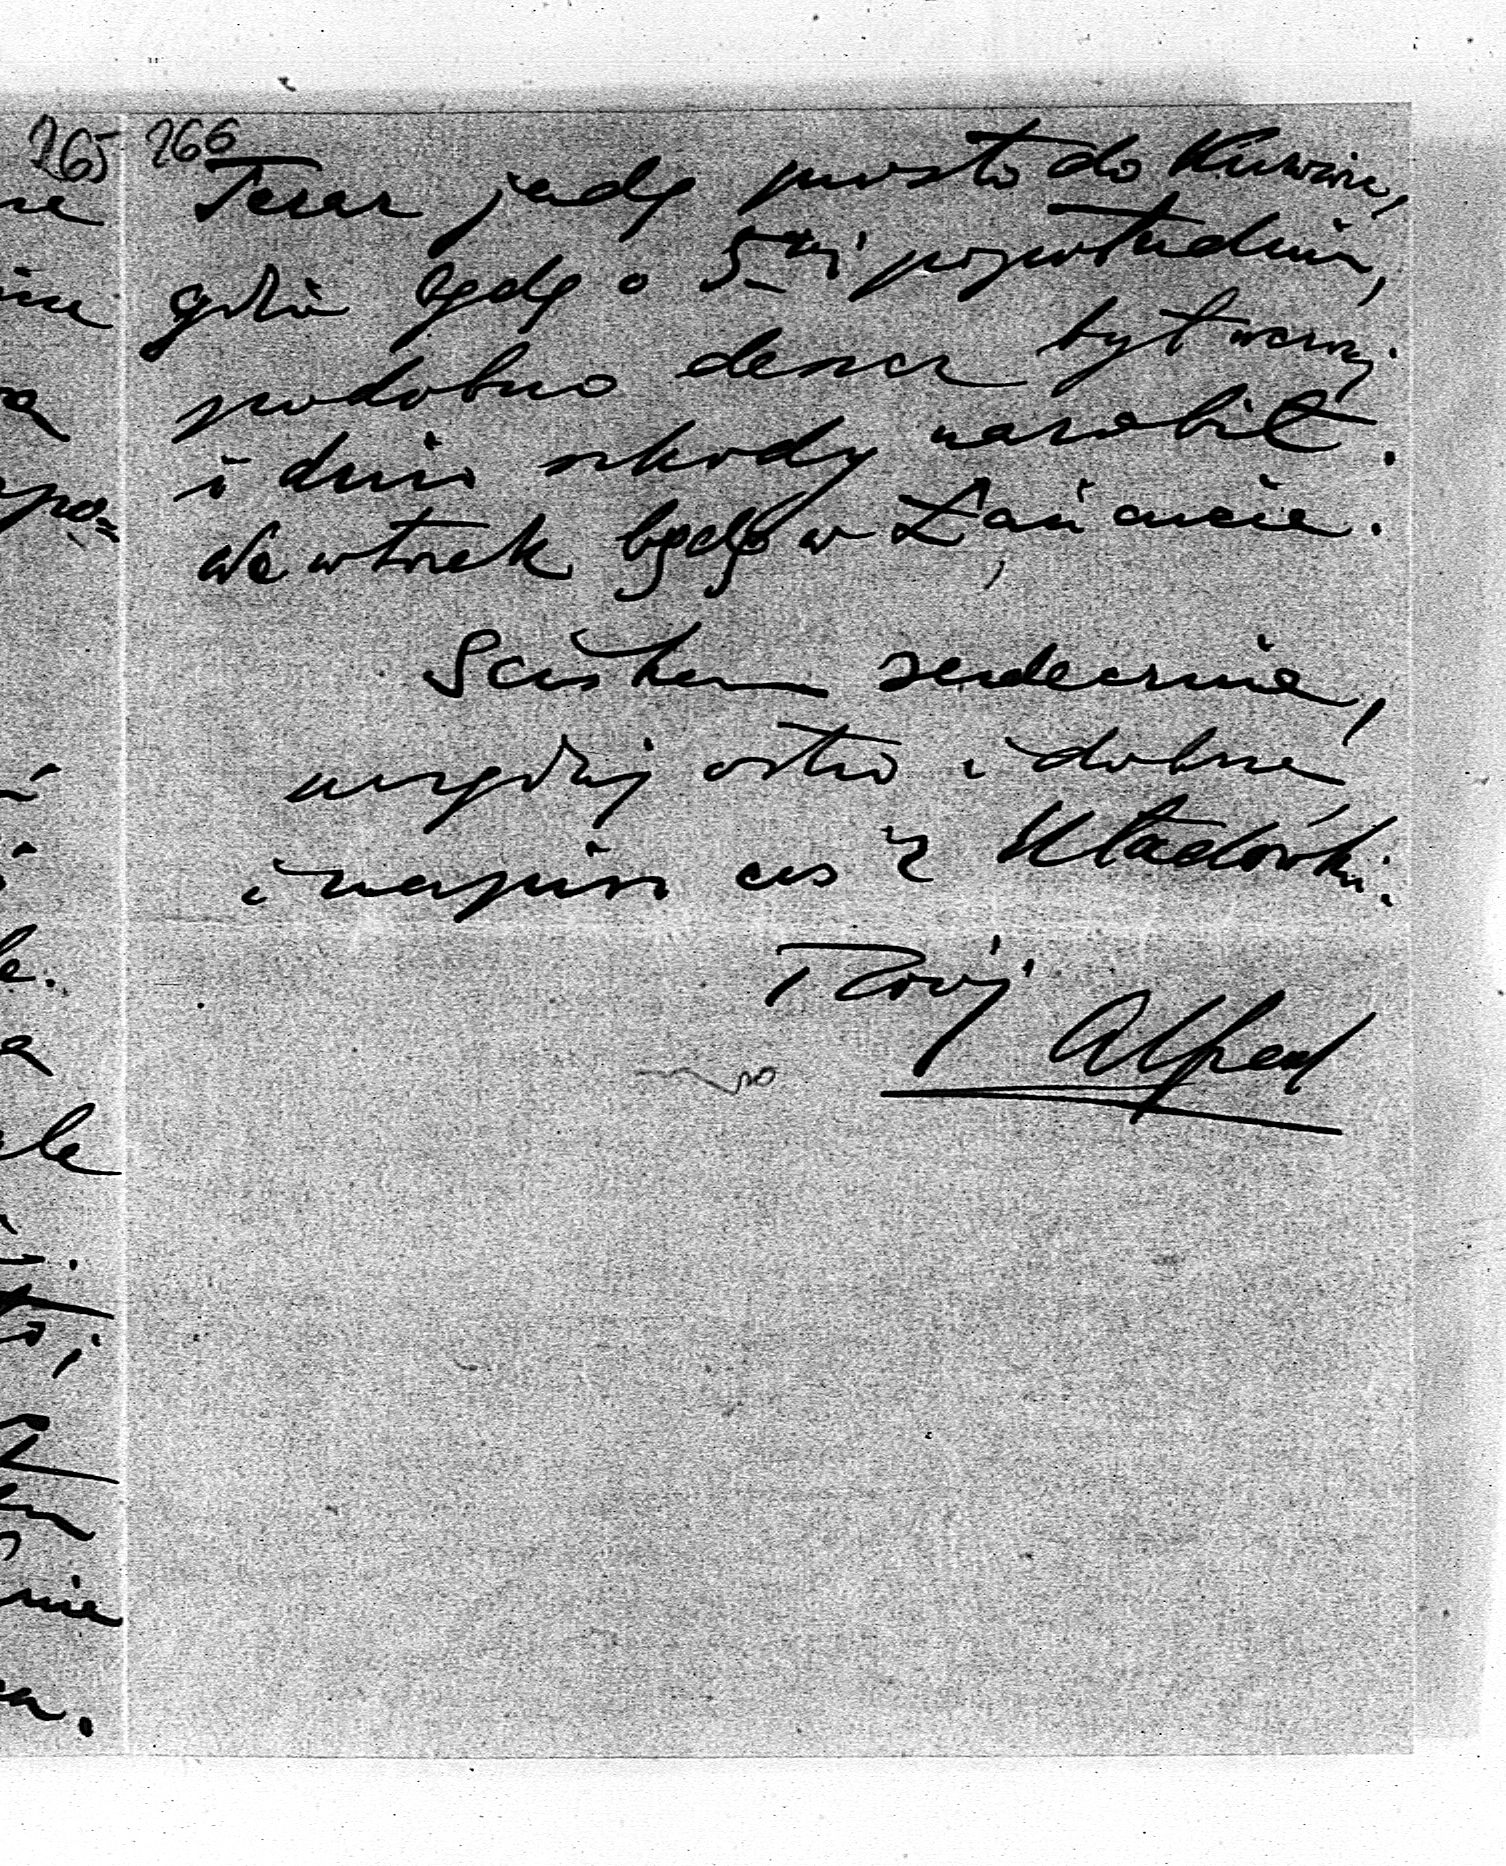 265 266
Teraz jadę prosto do Kurzan,
gdzie będę o 5tej popołudniu,
podobno deszcz był wczoraj
i dużo szkody narobił.
We wtorek będę w Łańcucie.
Ściskam serdecznie,
ostro i dobrze
i napisz coś z Władówki.
Twój
Alfred